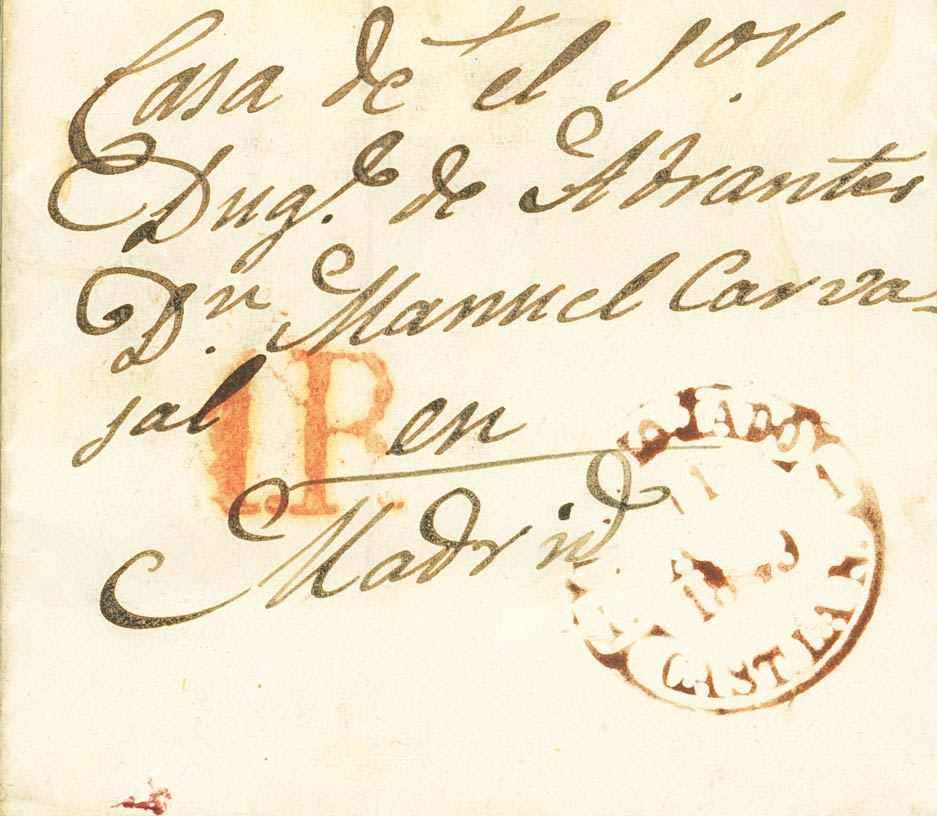 Casa de el Sor.
Duqe. de Abrantes
Dn. Manuel Carva-
jal en
Madrid
1R.
CAST. LA